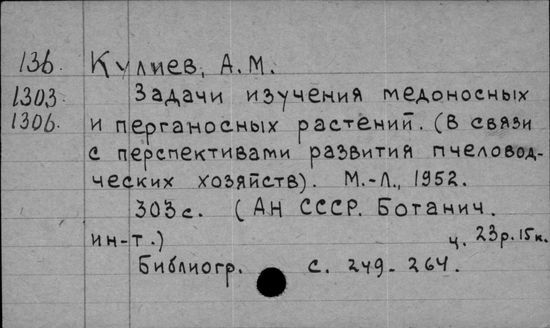 136. Кулиев, А.М.
1303. Задачи изучения медоносных
1306. и перганосных растений. (В связи
с перспективами развития пчеловод-
ческих хозяйств). М.-Л., 1952.
303 с. (АН СССР. Ботанич.
ин-т.) ц. 23р.15к.
Библиогр. с. 249-264.